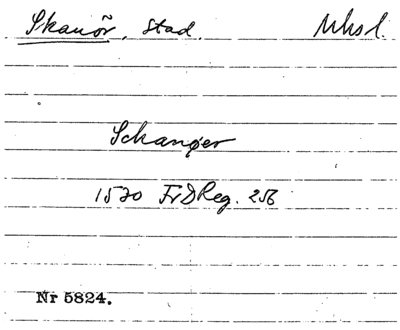 Skanör, stad. Mhsl.
Schanøer
1520 FrDReg. 256
Nr 5824.